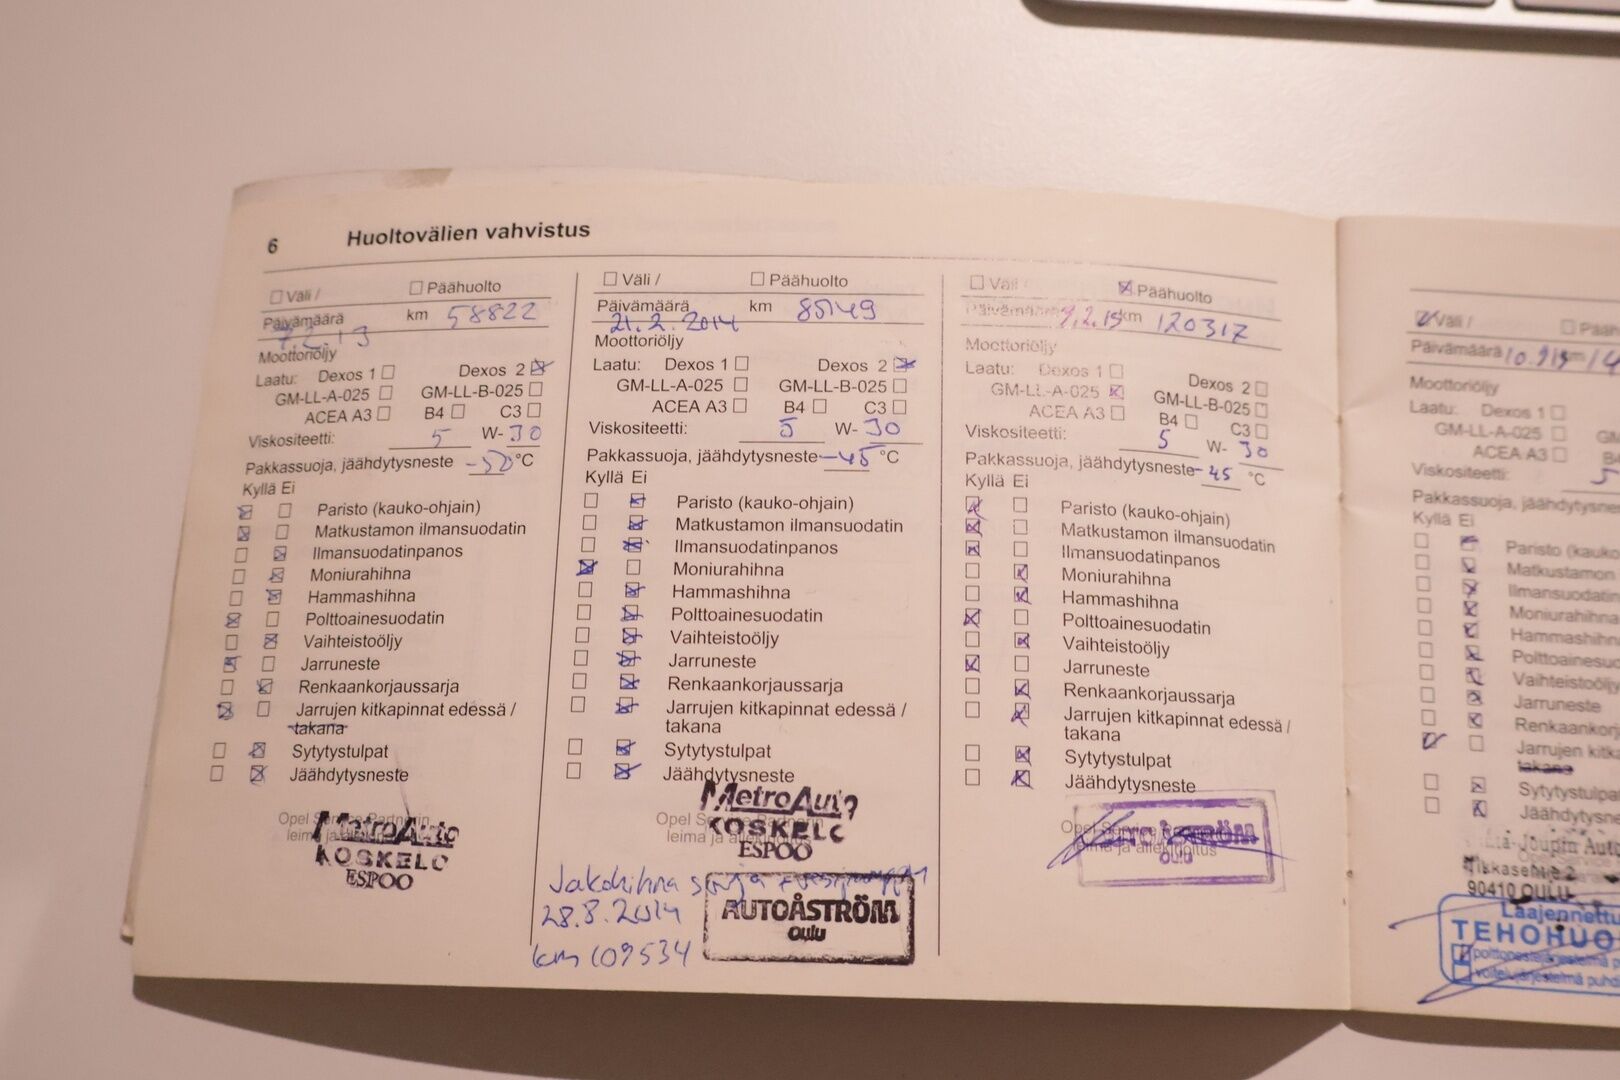 6 Huoltovälien vahvistus
Väli / Päähuolto
Päivämäärä km 58822
7.2.13
Moottoriöljy
Laatu: Dexos 1 Dexos 2
GM-LL-A-025 GM-LL-B-025
ACEA A3 B4 C3
Viskositeetti: 5 W- 30
Pakkassuoja, jäähdytysneste °C
Kyllä Ei
Paristo (kauko-ohjain)
Matkustamon ilmansuodatin
Ilmansuodatinpanos
Moniurahihna
Hammashihna
Polttoainesuodatin
Vaihteistoöljy
Jarruneste
Renkaankorjaussarja
Jarrujen kitkapinnat edessä /
takana
Sytytystulpat
Jäähdytysneste
Opel Service Partnerin
leima ja
MetroAuto
KOSKELO
ESPOO
Väli / Päähuolto
Päivämäärä km 85149
21.2.2014
Moottoriöljy
Laatu: Dexos 1 Dexos 2
GM-LL-A-025 GM-LL-B-025
ACEA A3 B4 C3
Viskositeetti: 5 W- 30
Pakkassuoja, jäähdytysneste -45 °C
Kyllä Ei
Paristo (kauko-ohjain)
Matkustamon ilmansuodatin
Ilmansuodatinpanos
Moniurahihna
Hammashihna
Polttoainesuodatin
Vaihteistoöljy
Jarruneste
Renkaankorjaussarja
Jarrujen kitkapinnat edessä /
takana
Sytytystulpat
Jäähdytysneste
Opel Service Partnerin
leima ja allekirjoitus
MetroAuto
KOSKELO
ESPOO
Jakohihna sarja + vesipumppu
28.8.2014
km 109534
AUTOÅSTRÖM
OULU
Väli / Päähuolto
Päivämäärä 9.2.15 km 120317
Moottoriöljy
Laatu: Dexos 1 Dexos 2
GM-LL-A-025 GM-LL-B-025
ACEA A3 B4 C3
Viskositeetti: 5 W- 30
Pakkassuoja, jäähdytysneste -45 °C
Kyllä Ei
Paristo (kauko-ohjain)
Matkustamon ilmansuodatin
Ilmansuodatinpanos
Moniurahihna
Hammashihna
Polttoainesuodatin
Vaihteistoöljy
Jarruneste
Renkaankorjaussarja
Jarrujen kitkapinnat edessä /
takana
Sytytystulpat
Jäähdytysneste
Opel Service
leima ja allekirjoitus
OULU
Väli /
Päivämäärä km
Moottoriöljy
Laatu: Dexos 1
GM-LL-A-025
ACEA A3
Viskositeetti: 5
Pakkassuoja,
Kyllä Ei
Paristo
Matkustamon
Moniurahihna
Jarruneste
takana
Sytytystulpat
Joupin
90410 OULU